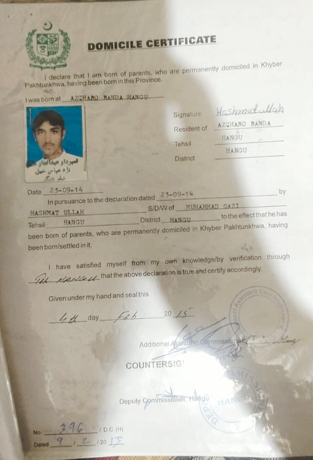 DOMICILE CERTIFICATE
I declare that I am born of parents, who are permanently domiciled in Khyber
Pakhtunkhwa, having been born in this Province.
I was born at AZGHARO BANDA HANGU
Signature Hashmat ullah
Resident of AZGHARO BANDA
Tehsil HANGU
District HANGU
Date 23-09-14
In pursuance to the declaration dated 23-09-14 by
HASHMAT ULLAH S/D/W of MUHAMMAD GAZI
Tehsil HANGU District HANGU to the effect that he has
been born of parents, who are permanently domiciled in Khyber Pakhtunkhwa, having
been born/settled in it.
I have satisfied myself from my own knowledge/by verification through
Teh Hangu that the above declaration is true and certify accordingly.
Given under my hand and seal this
day Feb 2015
Additional
COUNTERSIG
Deputy Commissioner, Hangu
No. 396 / D.C (H)
Dated 9 / 2 /2015